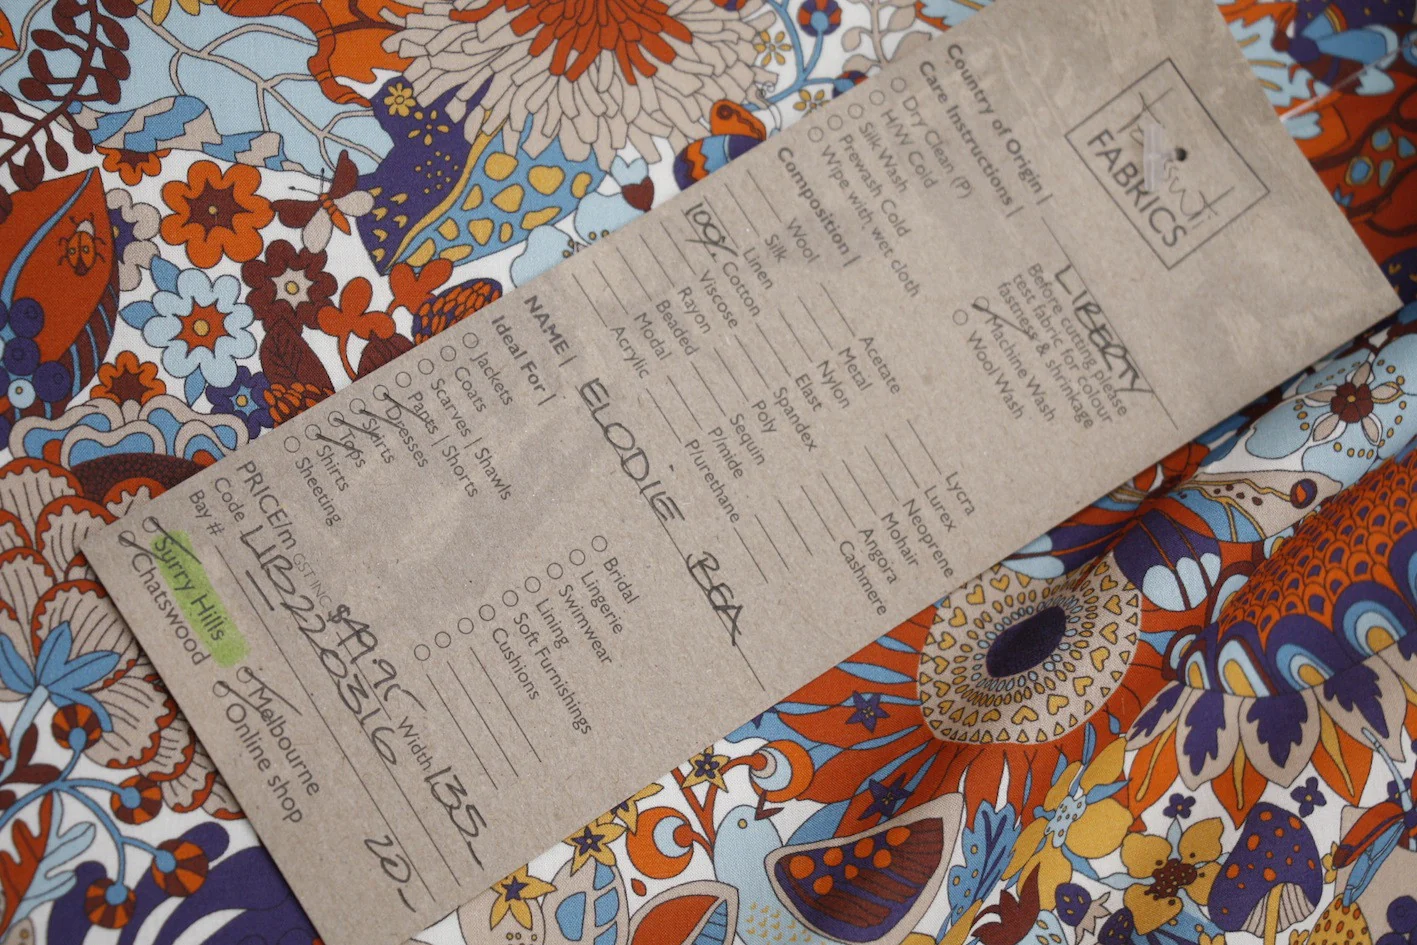 FABRICS
Country of Origin | LIBERTY
Care Instructions |
Before cutting please
test fabric for colour
fastness & shrinkage
Dry Clean (P)
H/W Cold
Silk Wash
Prewash Cold
Wipe with wet cloth
Machine Wash
Wool Wash
Composition |
Wool
Silk
Linen
100% Cotton
Viscose
Rayon
Beaded
Modal
Acrylic
Acetate
Metal
Nylon
Elast
Spandex
Poly
Sequin
P/mide
P/urethane
Lycra
Lurex
Neoprene
Mohair
Angora
Cashmere
NAME | ELODIE REA
Ideal For |
Jackets
Coats
Scarves | Shawls
Pants | Shorts
Dresses
Skirts
Tops
Shirts
Sheeting
Bridal
Lingerie
Swimwear
Lining
Soft Furnishings
Cushions
PRICE/m GST INC $49.95 Width 135
Code LIB2220316
Bay # 20-
Surry Hills
Chatswood
Melbourne
Online shop